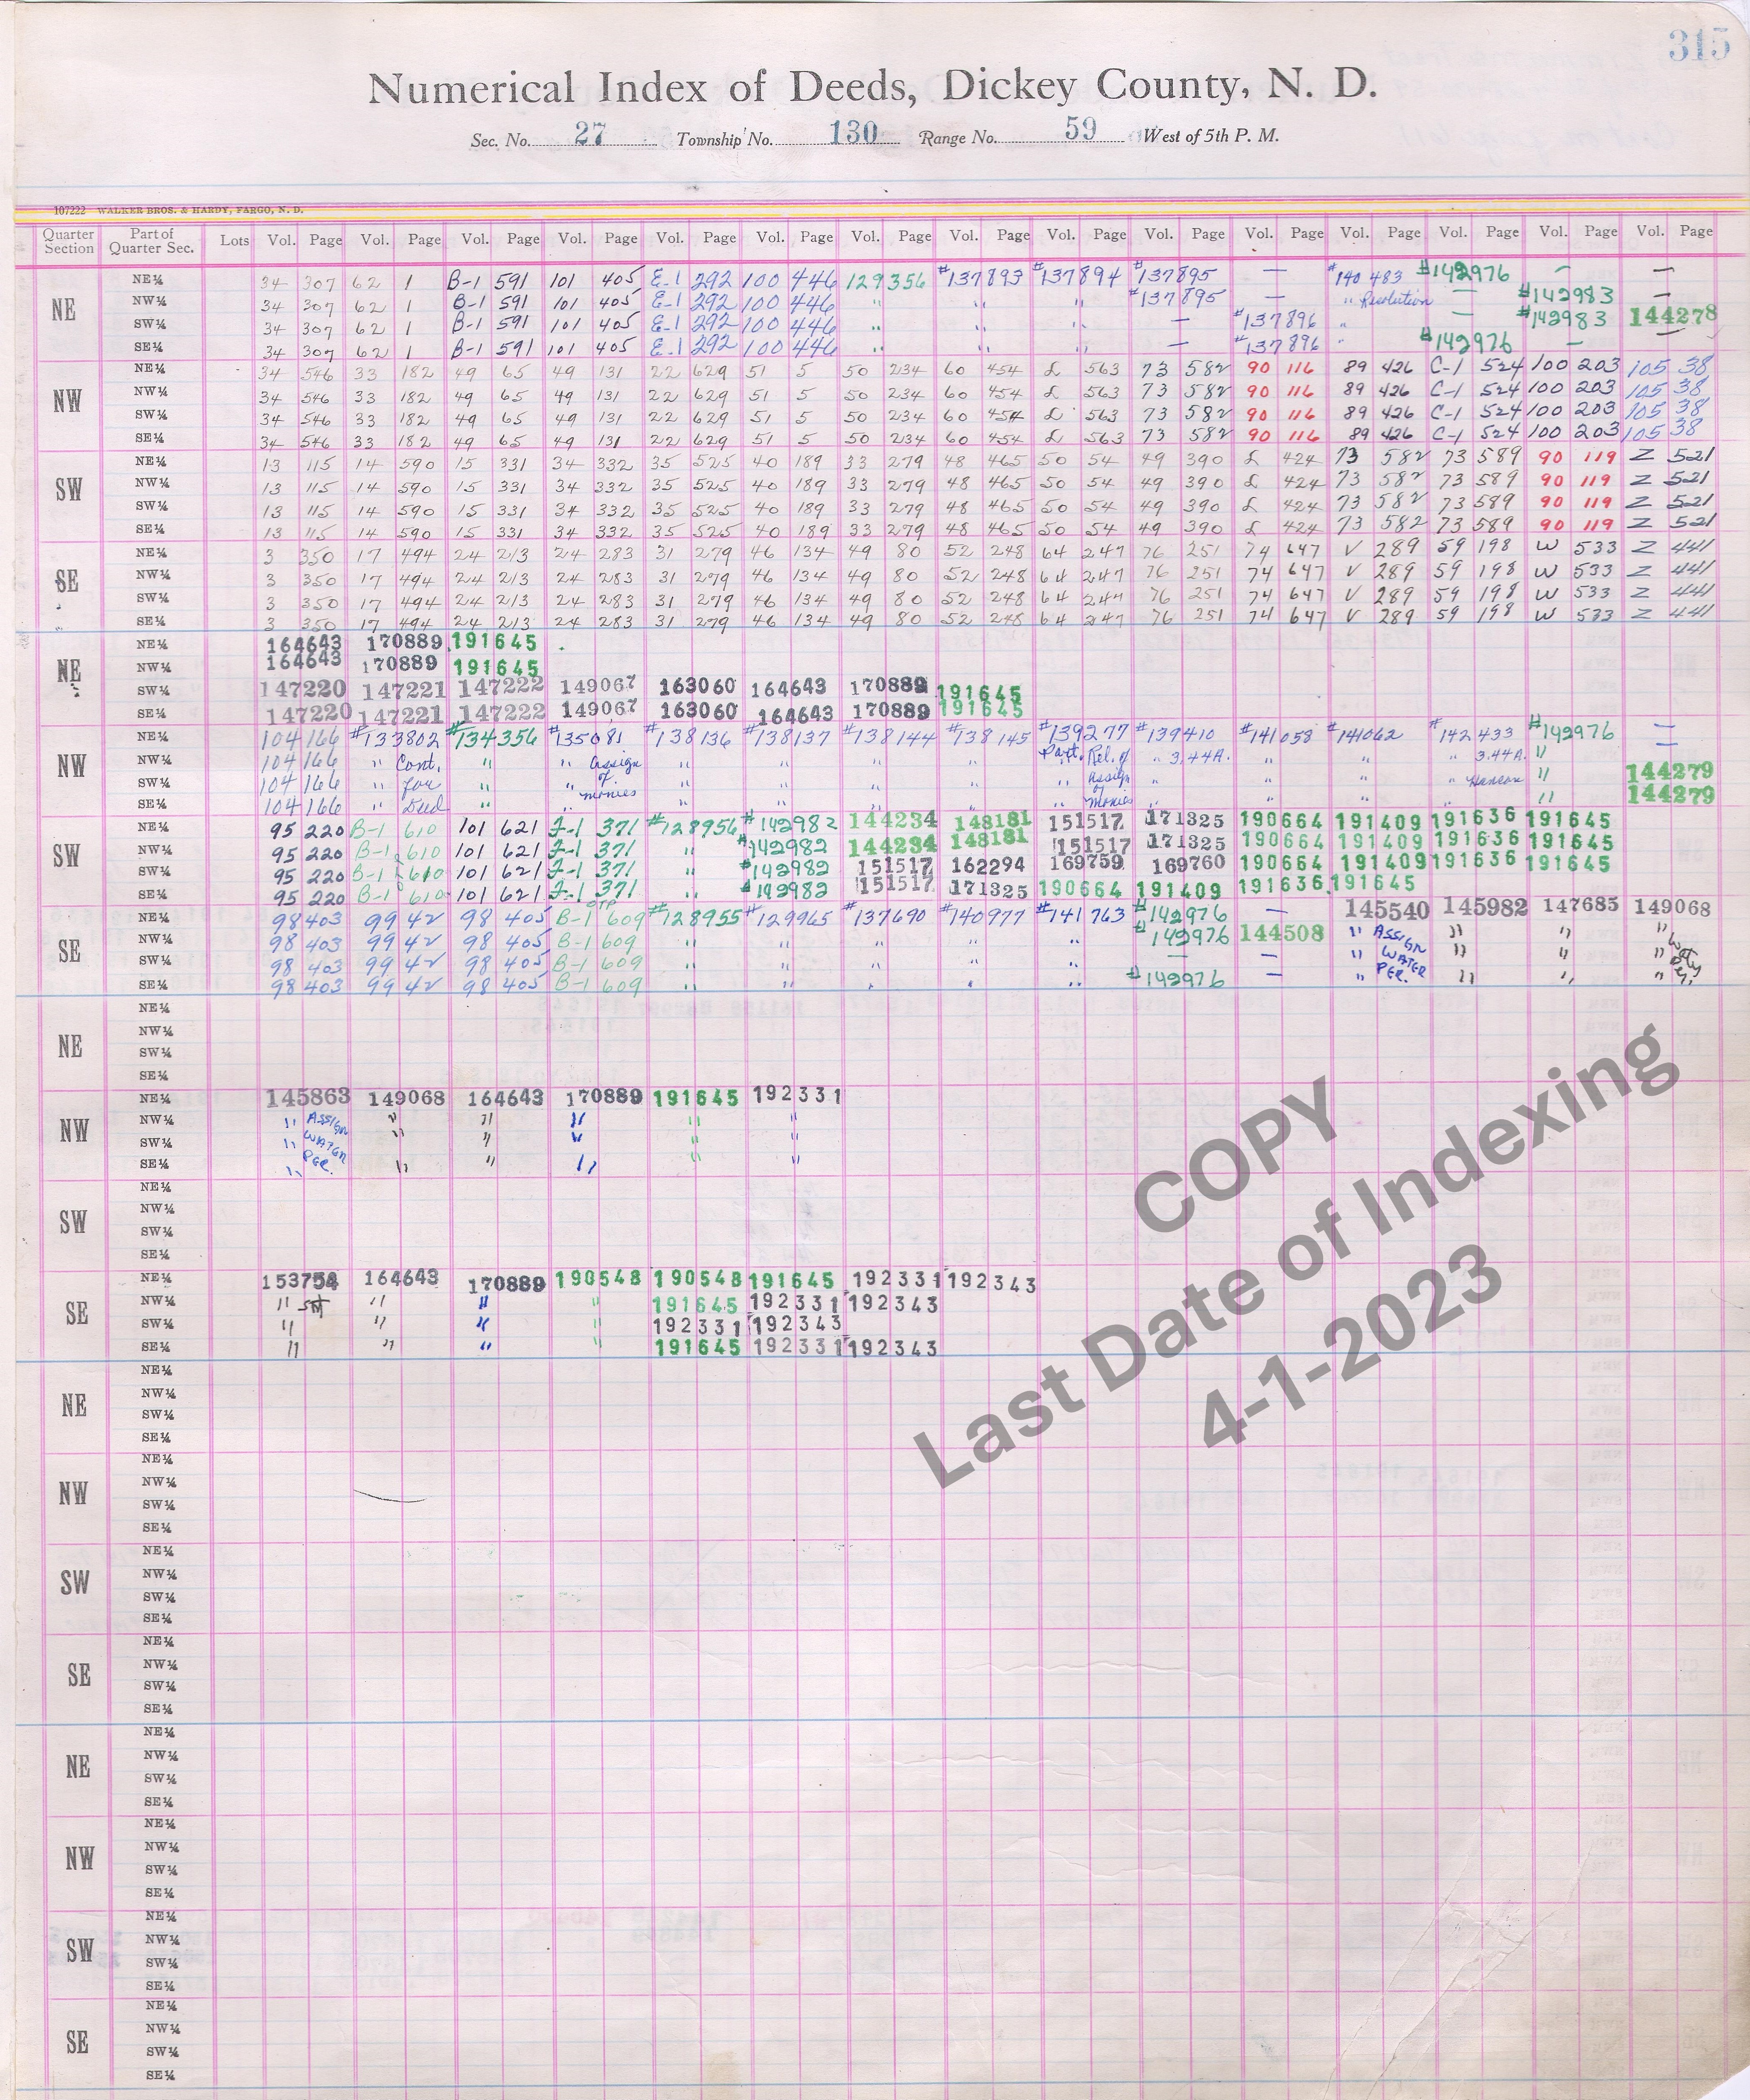 315
Numerical Index of Deeds, Dickey County, N. D.
Sec. No. 27 Township No. 130 Range No. 59 West of 5th P. M.
107222 WALKER BROS. & HARDY, FARGO, N. D.
Quarter Section Part of Quarter Sec. Lots Vol. Page Vol. Page Vol. Page Vol. Page Vol. Page Vol. Page Vol. Page Vol. Page Vol. Page Vol. Page Vol. Page Vol. Page Vol. Page Vol. Page Vol. Page
NE
NE¼ 34 307 62 1 B-1 591 101 405 E-1 292 100 446 129356 #137893 #137894 #137895 — #140483 #142976 — —
NW¼ 34 307 62 1 B-1 591 101 405 E-1 292 100 446 " " " #137895 — " Resolution — #142983 —
SW¼ 34 307 62 1 B-1 591 101 405 E-1 292 100 446 " " " — #137896 " — #142983 144278
SE¼ 34 307 62 1 B-1 591 101 405 E-1 292 100 446 " " " — #137896 " #142976 — —
NW
NE¼ 34 546 33 182 49 65 49 131 22 629 51 5 50 234 60 454 L 563 73 582 90 116 89 426 C-1 524 100 203 105 38
NW¼ 34 546 33 182 49 65 49 131 22 629 51 5 50 234 60 454 L 563 73 582 90 116 89 426 C-1 524 100 203 105 38
SW¼ 34 546 33 182 49 65 49 131 22 629 51 5 50 234 60 454 L 563 73 582 90 116 89 426 C-1 524 100 203 105 38
SE¼ 34 546 33 182 49 65 49 131 22 629 51 5 50 234 60 454 L 563 73 582 90 116 89 426 C-1 524 100 203 105 38
SW
NE¼ 13 115 14 590 15 331 34 332 35 525 40 189 33 279 48 465 50 54 49 390 L 424 73 582 73 589 90 119 Z 521
NW¼ 13 115 14 590 15 331 34 332 35 525 40 189 33 279 48 465 50 54 49 390 L 424 73 582 73 589 90 119 Z 521
SW¼ 13 115 14 590 15 331 34 332 35 525 40 189 33 279 48 465 50 54 49 390 L 424 73 582 73 589 90 119 Z 521
SE¼ 13 115 14 590 15 331 34 332 35 525 40 189 33 279 48 465 50 54 49 390 L 424 73 582 73 589 90 119 Z 521
SE
NE¼ 3 350 17 494 24 213 24 283 31 279 46 134 49 80 52 248 64 247 76 251 74 647 V 289 59 198 W 533 Z 441
NW¼ 3 350 17 494 24 213 24 283 31 279 46 134 49 80 52 248 64 247 76 251 74 647 V 289 59 198 W 533 Z 441
SW¼ 3 350 17 494 24 213 24 283 31 279 46 134 49 80 52 248 64 247 76 251 74 647 V 289 59 198 W 533 Z 441
SE¼ 3 350 17 494 24 213 24 283 31 279 46 134 49 80 52 248 64 247 76 251 74 647 V 289 59 198 W 533 Z 441
NE
NE¼ 164643 170889 191645
NW¼ 164643 170889 191645
SW¼ 147220 147221 147222 149067 163060 164643 170889 191645
SE¼ 147220 147221 147222 149067 163060 164643 170889 191645
NW
NE¼ 104 166 #133802 #134356 #135081 #138136 #138137 #138144 #138145 #139277 #139410 #141058 #141062 #142433 #142976 —
NW¼ 104 166 " Cont. " " Assign " " " " Part. Rel. of " 3.44A. " " " 3.44A. " —
SW¼ 104 166 " for " " of " " " " " Assign " " " " Hanson " 144279
SE¼ 104 166 " Deed " " monies " " " " " of Monies " " " " " 144279
SW
NE¼ 95 220 B-1 610 101 621 F-1 371 #128956 #142982 144234 148181 151517 171325 190664 191409 191636 191645
NW¼ 95 220 B-1 610 101 621 F-1 371 " #142982 144234 148181 151517 171325 190664 191409 191636 191645
SW¼ 95 220 B-1 610 101 621 F-1 371 " #142982 151517 162294 169759 169760 190664 191409 191636 191645
SE¼ 95 220 B-1 610 101 621 F-1 371 " #142982 151517 171325 190664 191409 191636 191645
SE
OTP
NE¼ 98 403 99 42 98 405 B-1 609 #128955 #129965 #137690 #140977 #141763 #142976 — 145540 145982 147685 149068
NW¼ 98 403 99 42 98 405 B-1 609 " " " " " #142976 144508 " ASSIGN " " "
SW¼ 98 403 99 42 98 405 B-1 609 " " " " " — — " WATER " " "
SE¼ 98 403 99 42 98 405 B-1 609 " " " " " #142976 — " PER. " " "
NE
NE¼
NW¼
SW¼
SE¼
NW
NE¼ 145863 149068 164643 170889 191645 192331
NW¼ " ASSIGN " " " " "
SW¼ " WATER " " " " "
SE¼ " PER. " " " " "
SW
NE¼
NW¼
SW¼
SE¼
SE
NE¼ 153754 164643 170889 190548 190548 191645 192331 192343
NW¼ " " " " 191645 192331 192343
SW¼ " " " " 192331 192343
SE¼ " " " " 191645 192331 192343
NE
NE¼
NW¼
SW¼
SE¼
NW
NE¼
NW¼
SW¼
SE¼
SW
NE¼
NW¼
SW¼
SE¼
SE
NE¼
NW¼
SW¼
SE¼
NE
NE¼
NW¼
SW¼
SE¼
NW
NE¼
NW¼
SW¼
SE¼
SW
NE¼
NW¼
SW¼
SE¼
SE
NE¼
NW¼
SW¼
SE¼
COPY
Last Date of Indexing
4-1-2023